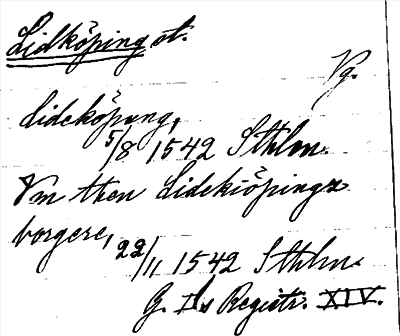 Lidköping st.
Vg.
Lideköpung,
5/8 1542 Sthlm.
Vm then Lidekiöpingz
borgere, 22/11 1542 Sthlm.
G. I:s Registr. XIV.